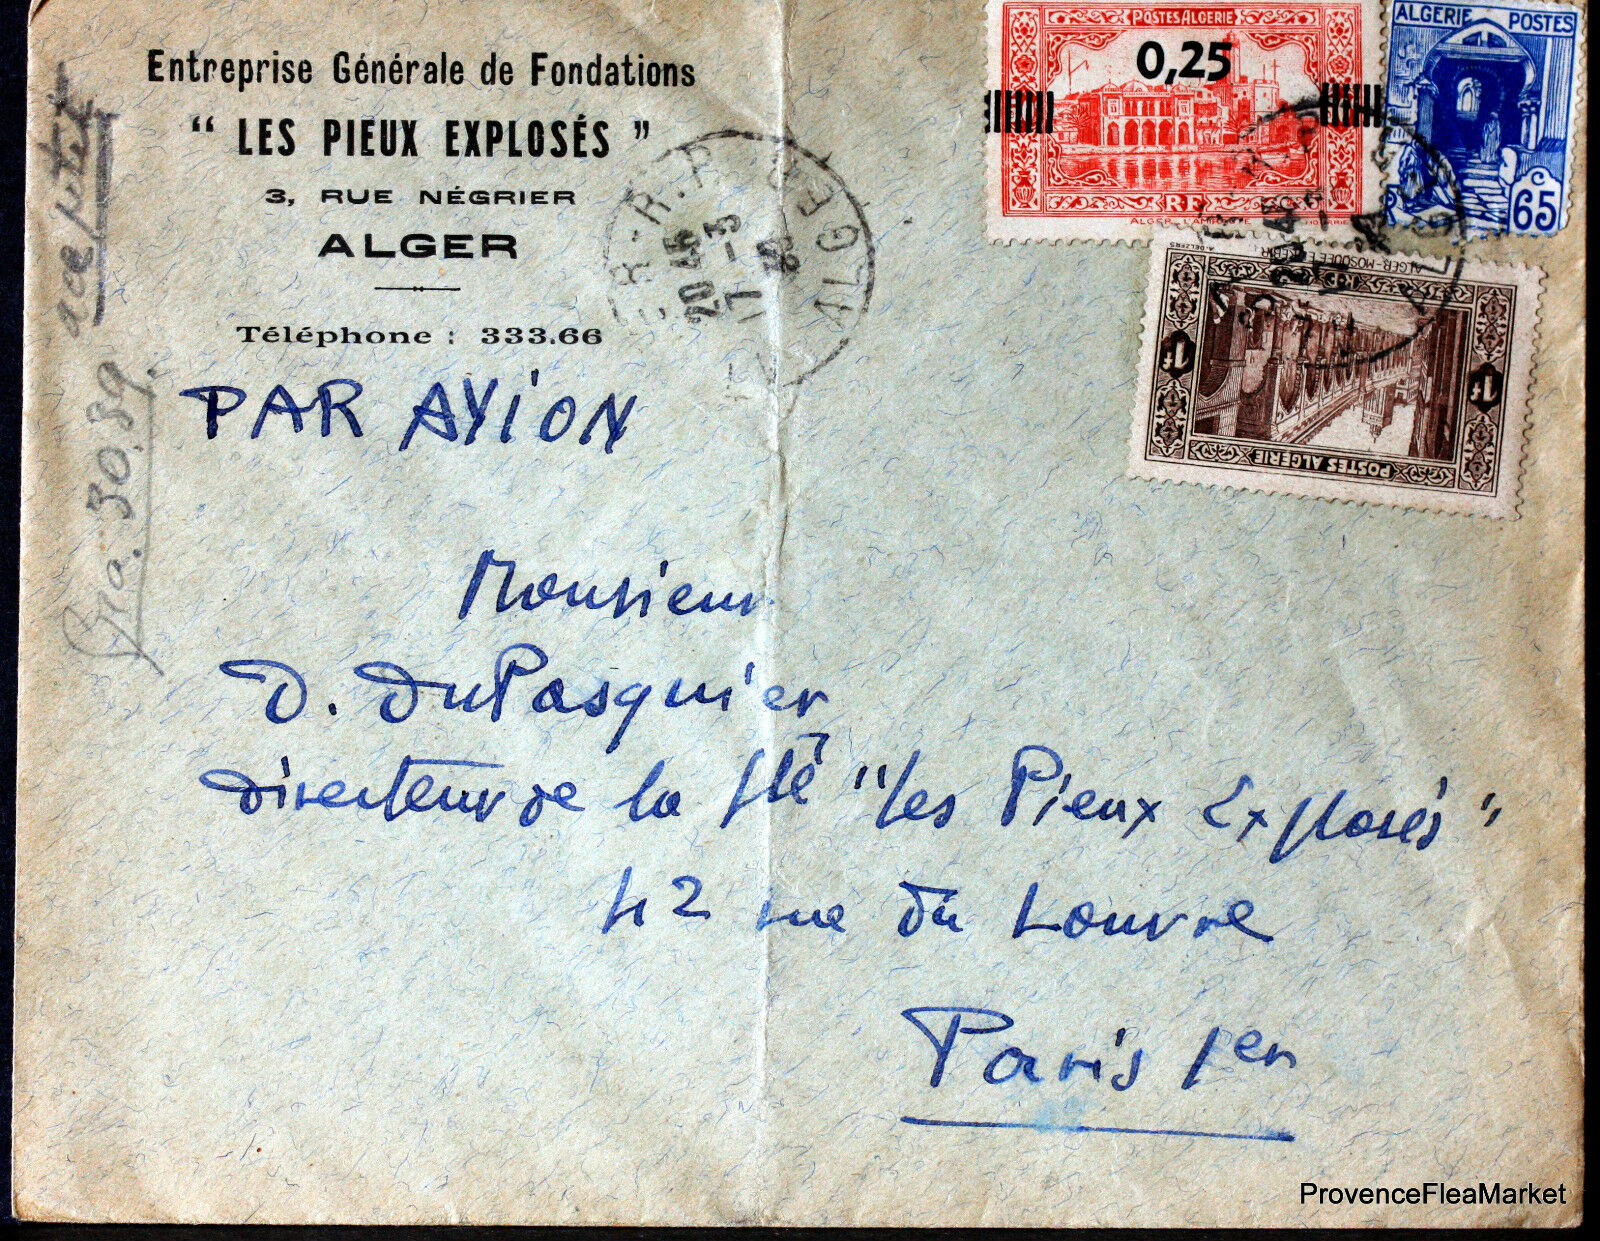 Entreprise Générale de Fondations
“ LES PIEUX EXPLOSÉS ”
3, RUE NÉGRIER
ALGER
Téléphone : 333.66
PAR AVION
POSTES ALGERIE
0,25
RF
ALGERIE POSTES
C
65
POSTES ALGERIE
1F
1F
R.P.
ALGER
20 45
17 - 3
39
30.89
Monsieur
D. DuPasquier
Directeur de la Sté "Les Pieux Explosés"
42 rue du Louvre
Paris 1er
ProvenceFleaMarket